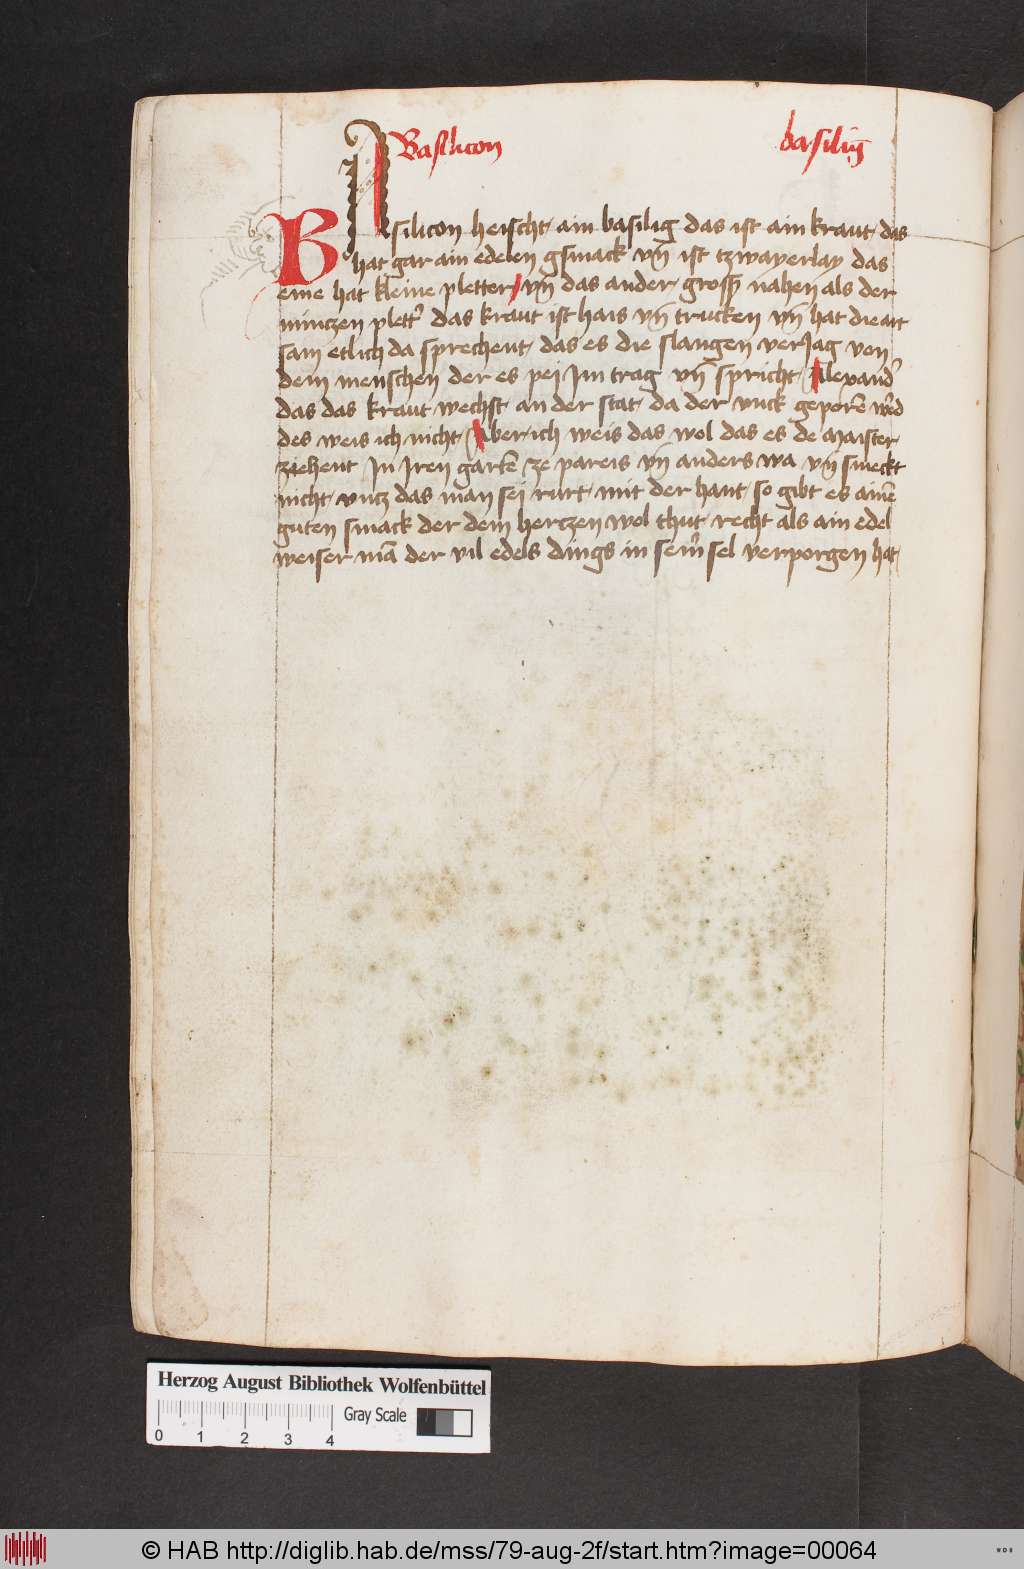 Basilicon
basilig̅
BAsilicon heischt ain basilig das ist ain kraut das
hat gar ain edelen gsmack vn̅ ist tzwayerlay das
eine hat kleine pletter / vn̅ das ander gross nahen als der
mintzen plett᾽ das kraut ist hais vn̅ trucken vn̅ hat die art
sam etlich da sprechent das es die slangen verJag von
dem menschen der es pei Jm trag vn̅ spricht Alexand᾽
das das kraut wechst an der stat da der vnck gepore̅
des weis ich nicht Aber ich weis das wol das es de Maister
ziehent Jn Jren garte̅ ze pareis vn̅ anders wa vn̅ smeckt
nicht vntz das man sei rurt mit der hant so gibt es aine̅
guten smack der dem hertzen wol thut recht als ain edel
weiser ma̅ der vil edels dings in seim̅ sel verporgen hat
Herzog August Bibliothek Wolfenbüttel
Gray Scale
0 1 2 3 4
© HAB http://diglib.hab.de/mss/79-aug-2f/start.htm?image=00064